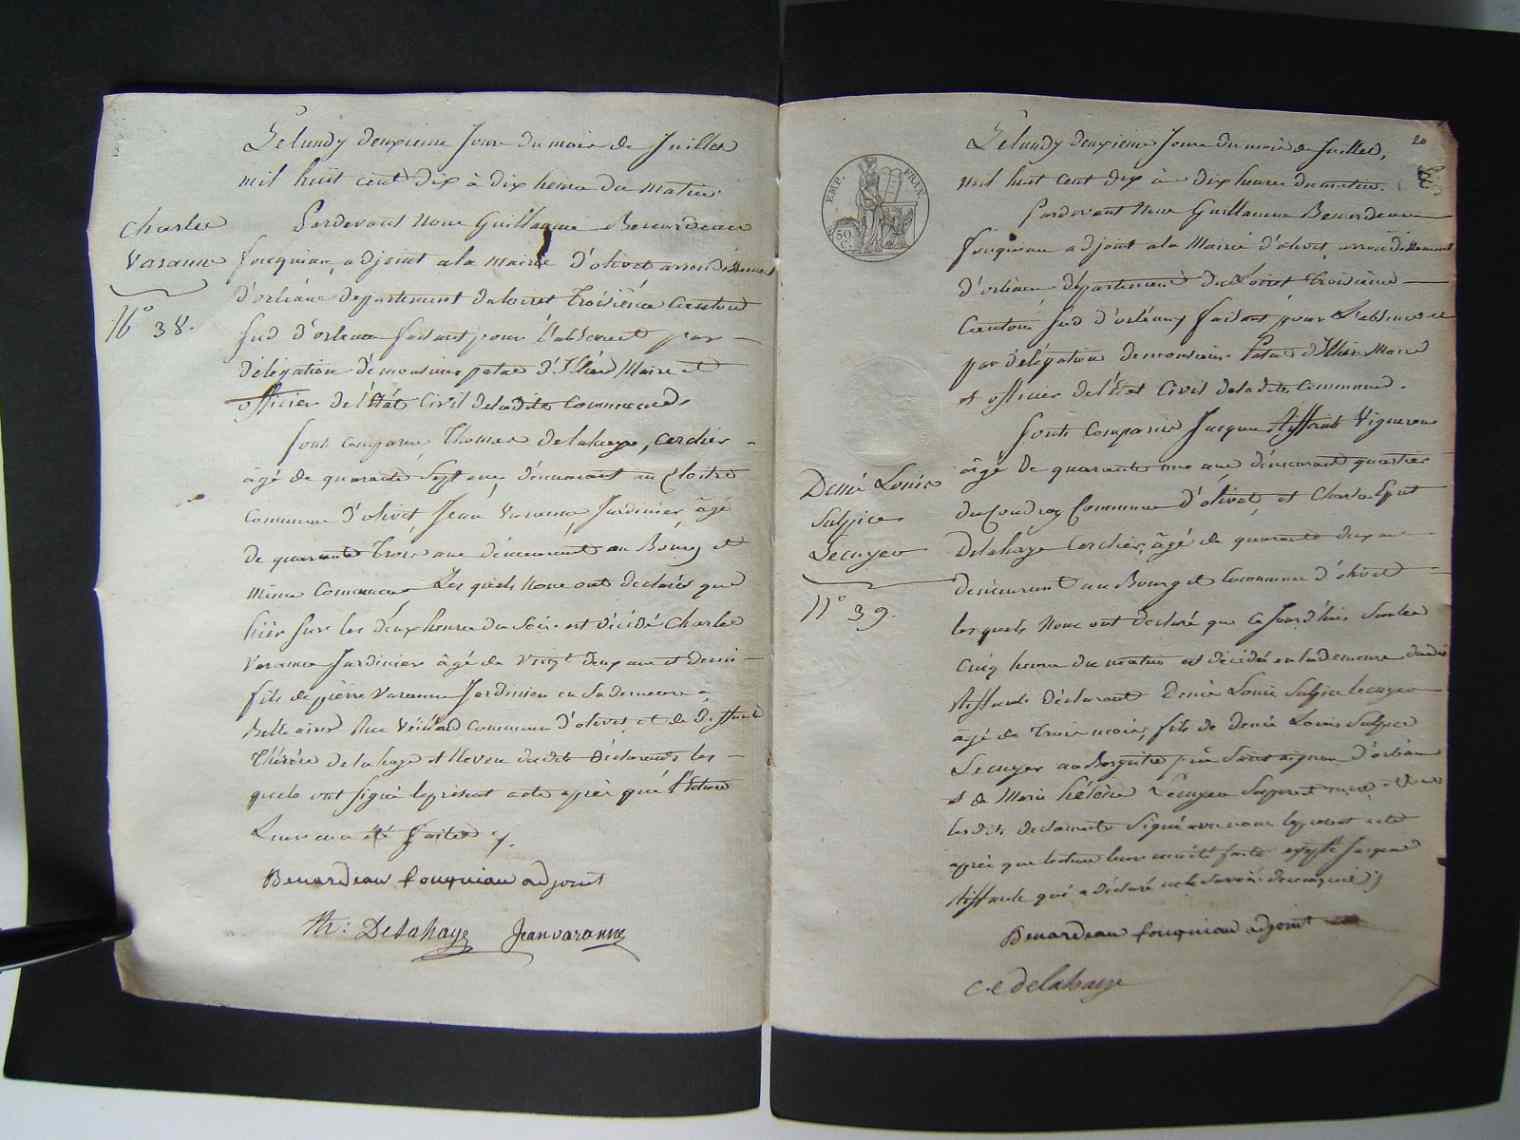 Le lundy deuxieme Jour du mois de Juillet
mil huit cent dix à dix heures du matin
Pardevant Nous Guillaume Benardeau
fouqueau, adjoint a la mairie d'olivet arrondissement
d'orléans departement du loiret troisiéme Canton
sud d'orleans faisant pour l'absence et par
délégation de monsieur patas d'Illiers Maire et
officier de l'état Civil de la dite commune
sont comparus Thomas delahaye, Cerclier
âgé de quarante sept ans démeurant au Cloitre
commune d'olivet Jean Varanne, Jardinier, âgé
de quarante trois ans démeurant au Bourg et
même commune Les quels nous ont declaré que
hier sur les deux heures du soir est décédé Charles
Varanne Jardinier âgé de vingt deux ans et demi
fils de pierre Varanne Jardinier en sa demeure
commune d'olivet et de
Thérèse delahaye et Neveu desdits déclarants les
quels ont signé le présent acte après que lecture
Leur en a été faite
Benardeau fouquiau adjoint
Th: Delahaye Jean varanne
Charles
Varanne
N° 38.
20
EMP. FRAN.
50
C.
Le lundy deuxieme Jour du mois de Juillet,
mil huit cent dix à dix heures du matin.
Pardevant Nous Guillaume Benardeau
fouquiau adjoint a la Mairie d'olivet, arrondissement
d'orléans département du Loiret troisiéme
Canton sud d'orléans faisant pour l'absence et
par délégation de monsieur Patas d'Illiers Maire
et officier de l'état Civil de la dite Commune.
sont comparus Jacques Vigneron
âgé de quarante ans démeurant quartier
du Coudray Commune d'olivet, et Charles Esprit
Delahaye Cerclier, âgé de quarante deux ans
demeurant au Bourg et Commune d'olivet
lesquels Nous ont declaré que ce Jourd'hui sur les
Cinq heures du matin est décédé en la demeure dudit
déclarant Denis Louis Sulpice Lecuyer
âgé de trois mois, fils de Denis Louis Sulpice
Lecuyer près Saint aignan d'orléans
et de Marie hélène Lecuyer ses pere et mere
les dits declarants signé avec nous le present acte
après que lecture leur en a été faite excepté Jacques
qui a déclaré ne le savoir de ce enquis
Benardeau fouquiau adjoint
c. e delahaye
Denis Louis
Sulpice
Lecuyer
N° 39.